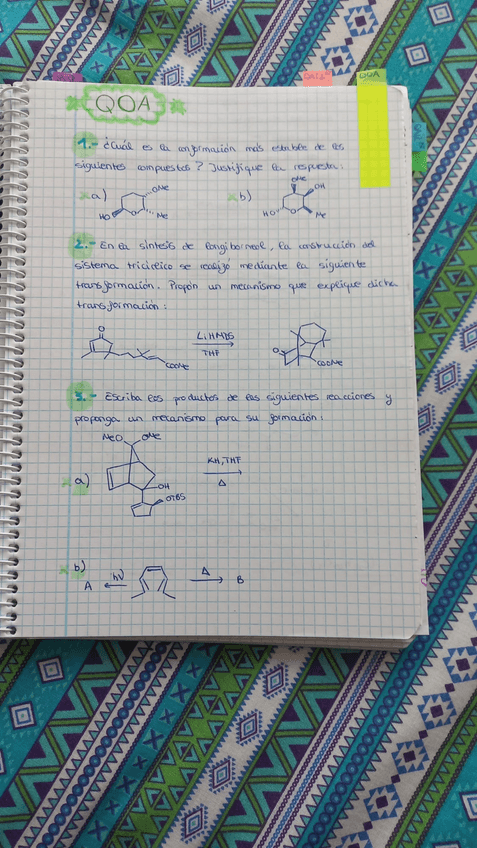 QOA
QOA
1.- ¿Cuál es la conformación más estable de los
siguientes compuestos? Justifique la respuesta:
a)
OMe
HO
O
Me
b)
OMe
OH
HO
O
Me
2.- En la síntesis de longiborneol, la construcción del
sistema tricíclico se realizó mediante la siguiente
transformación. Propón un mecanismo que explique dicha
transformación:
O
COOMe
LiHMDS
THF
O
COOMe
3.- Escriba los productos de las siguientes reacciones y
proponga un mecanismo para su formación:
MeO
OMe
a)
OH
OTBS
KH, THF
Δ
b)
A
hν
Δ
B